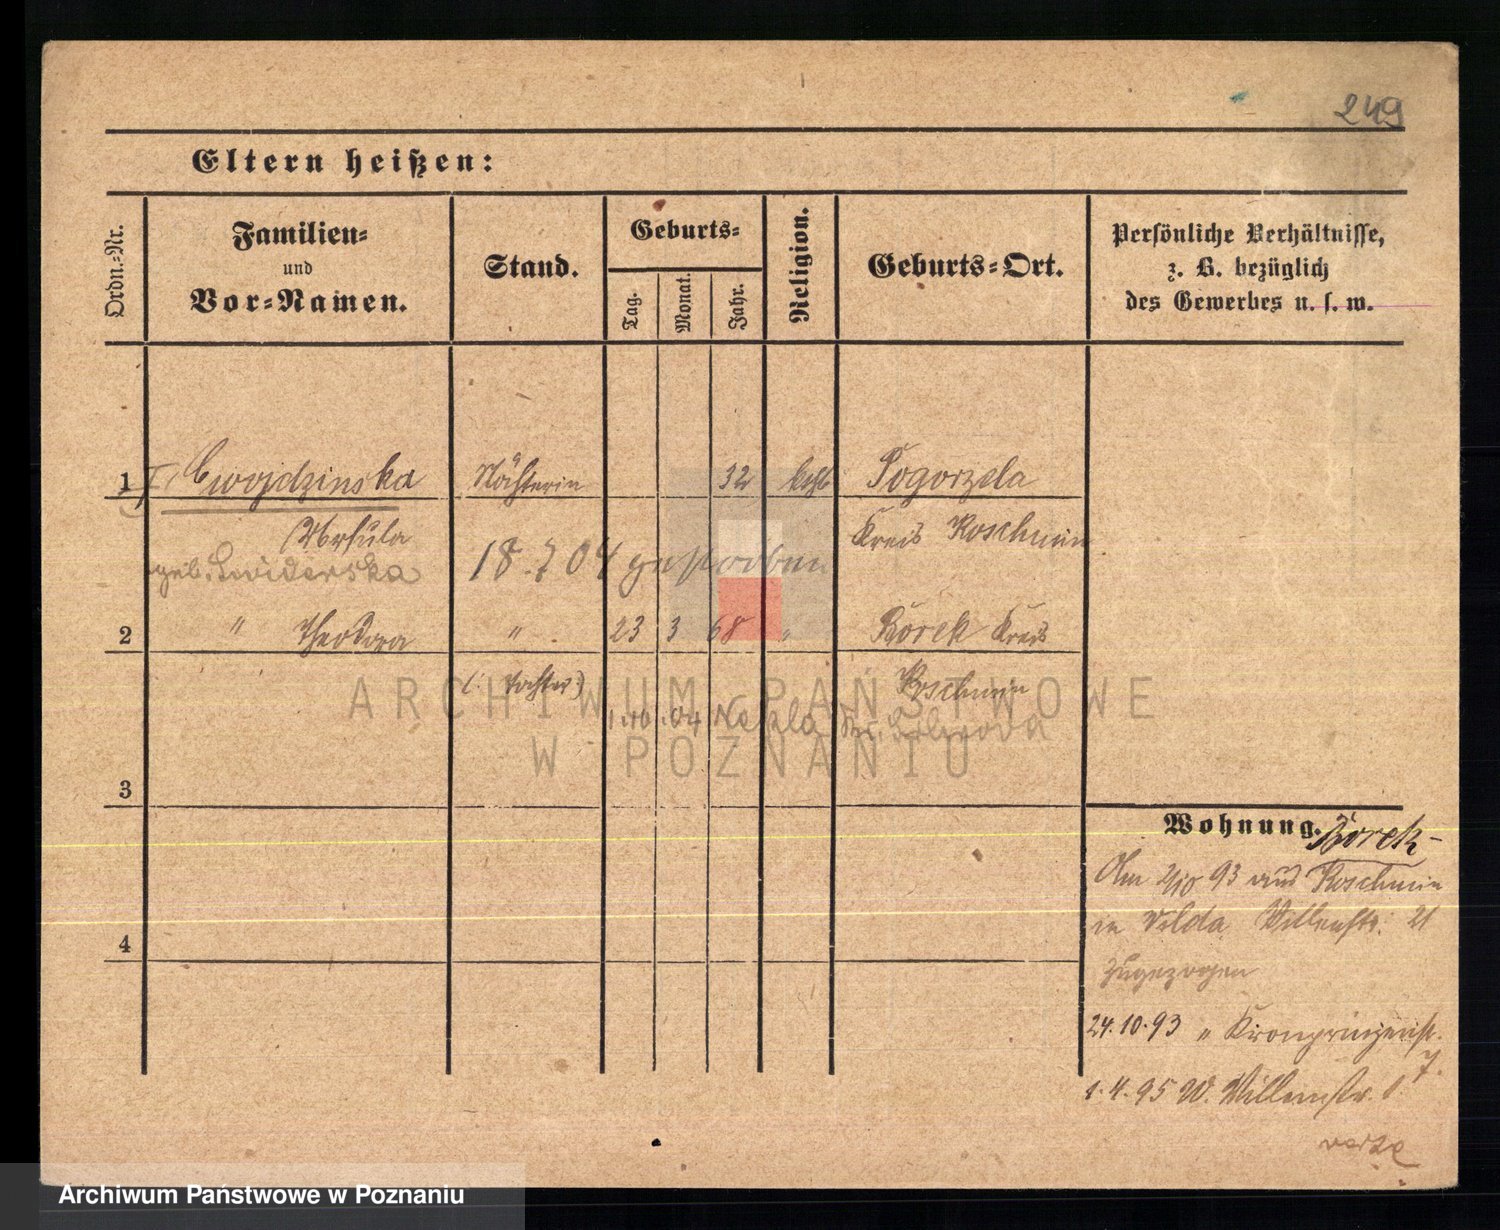 249
Eltern heißen:
Ordn.-Nr.
Familien-
und
Vor-Namen.
Stand.
Geburts-
Tag.
Monat.
Jahr.
Religion.
Geburts-Ort.
Persönliche Verhältnisse,
z. B. bezüglich
des Gewerbes u. s. w.
1 Cwojdzinska Nähterin 32 kath Pogorzela
Ursula Kreis Koschmin
geb. Swiderska 18.7 04 gestorben
2 " Theodora " 23 3 68 " Borek Kreis
(: Tochter) Koschmin
1.10.04 Nekla Kr. Schroda
3
4
Wohnung. Borek-
Am 2/10 93 aus Koschmin
in Wilda Willenstr. 21
zugezogen
24.10.93 " Kronprinzenstr.
7.
1.4.95 W. Willenstr.
verte
ARCHIWUM PAŃSTWOWE
W POZNANIU
Archiwum Państwowe w Poznaniu